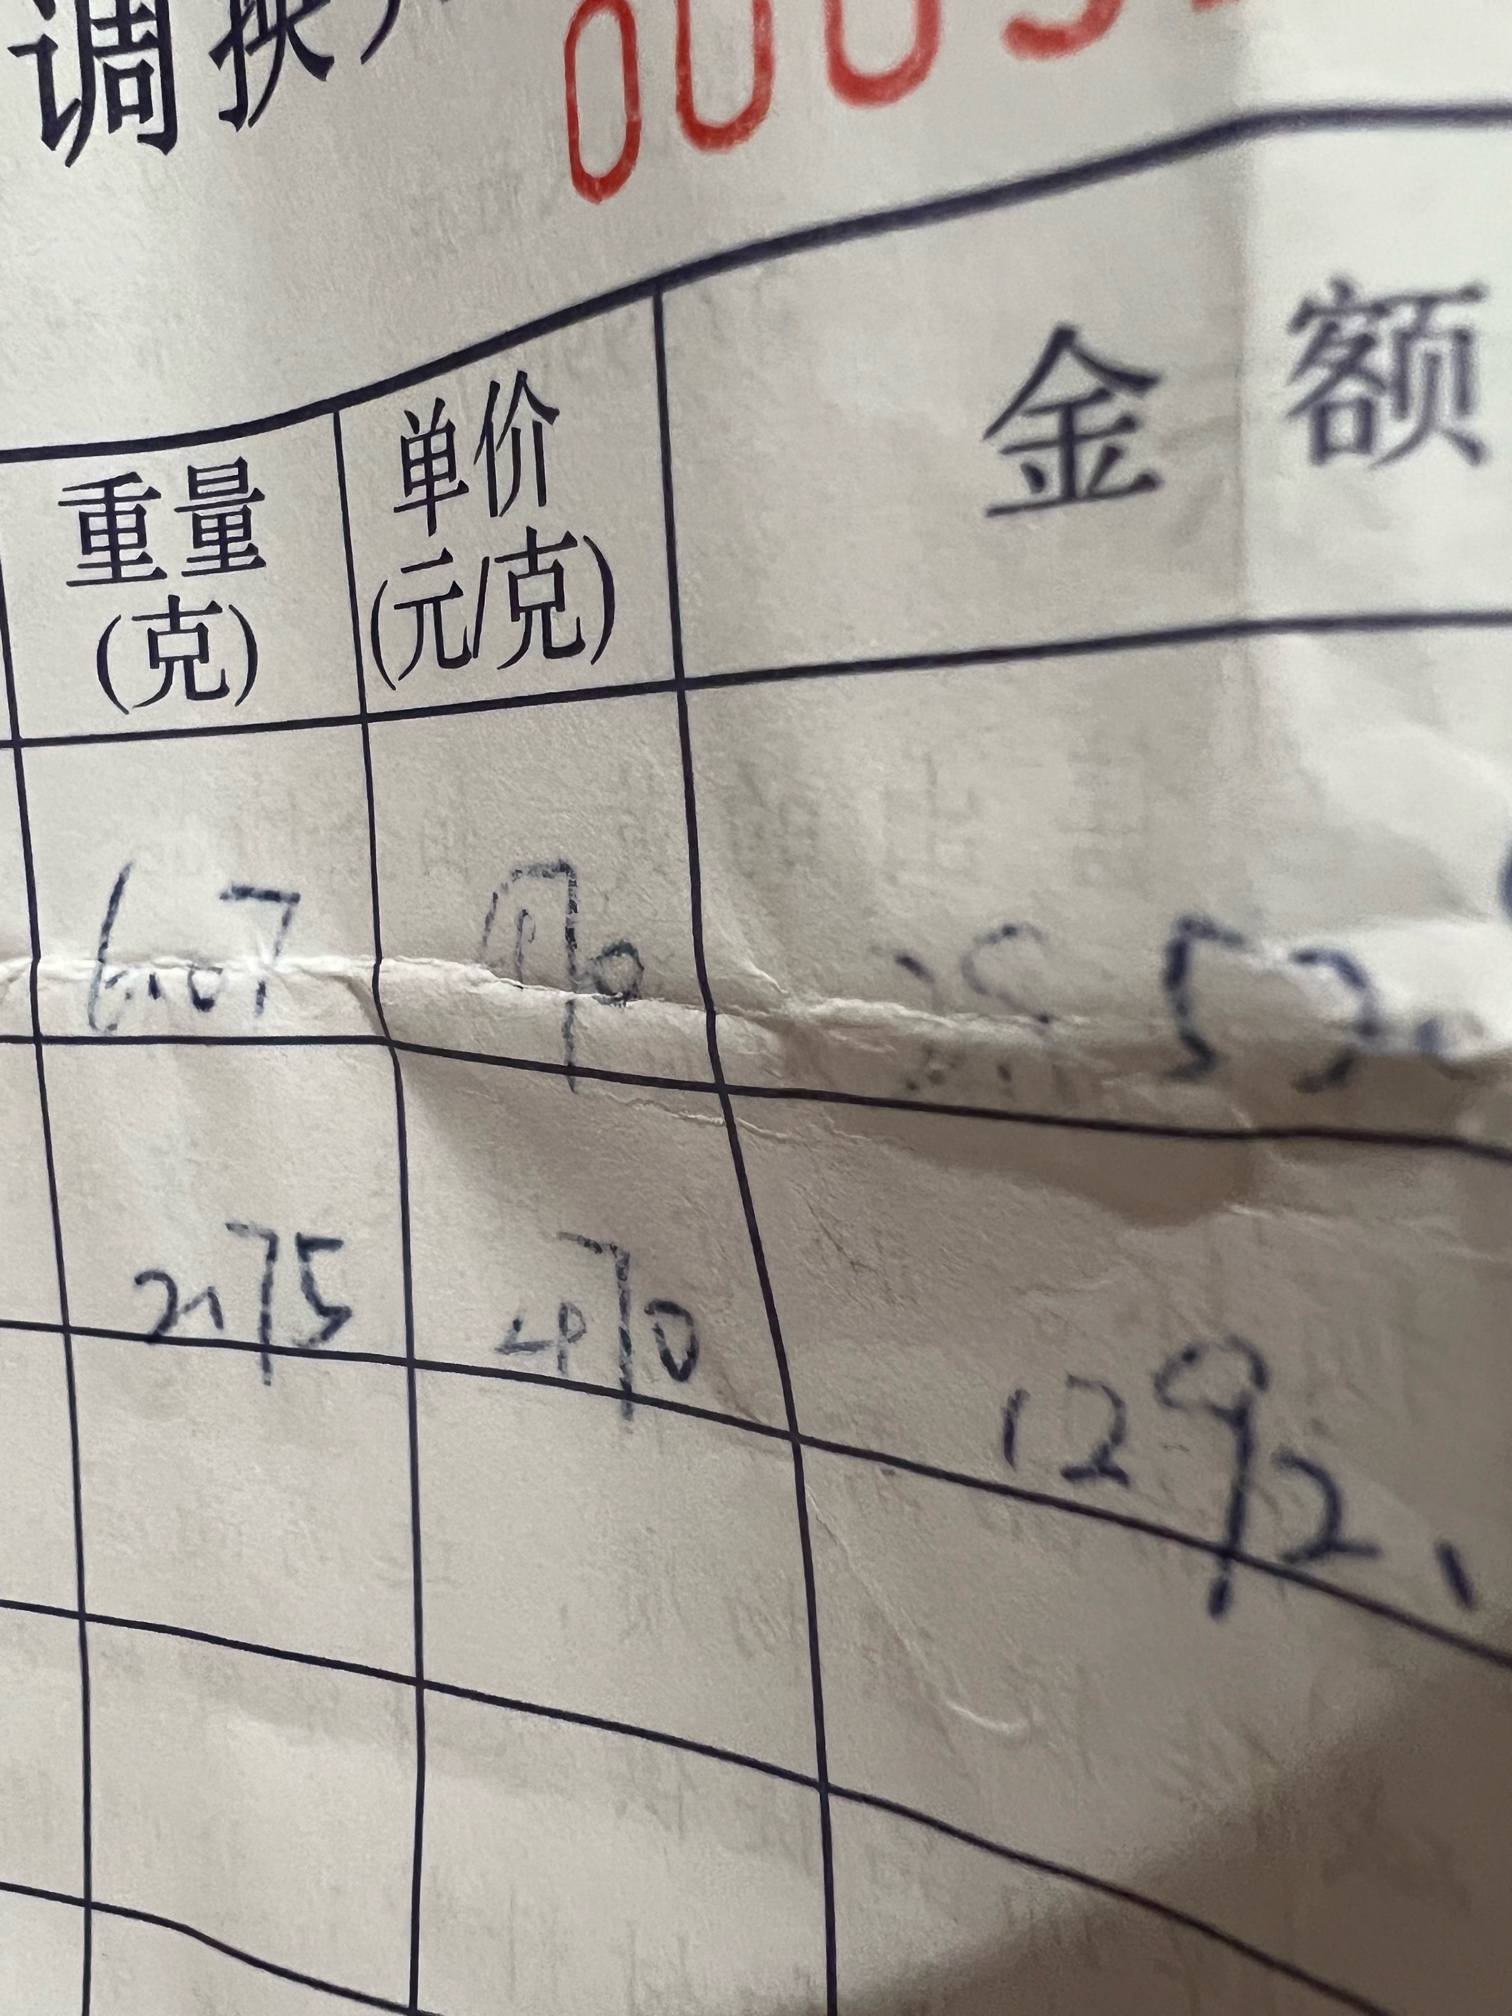 调换
重量 (克) 单价 (元/克) 金 额
6.07 470
2.75 470 1292.